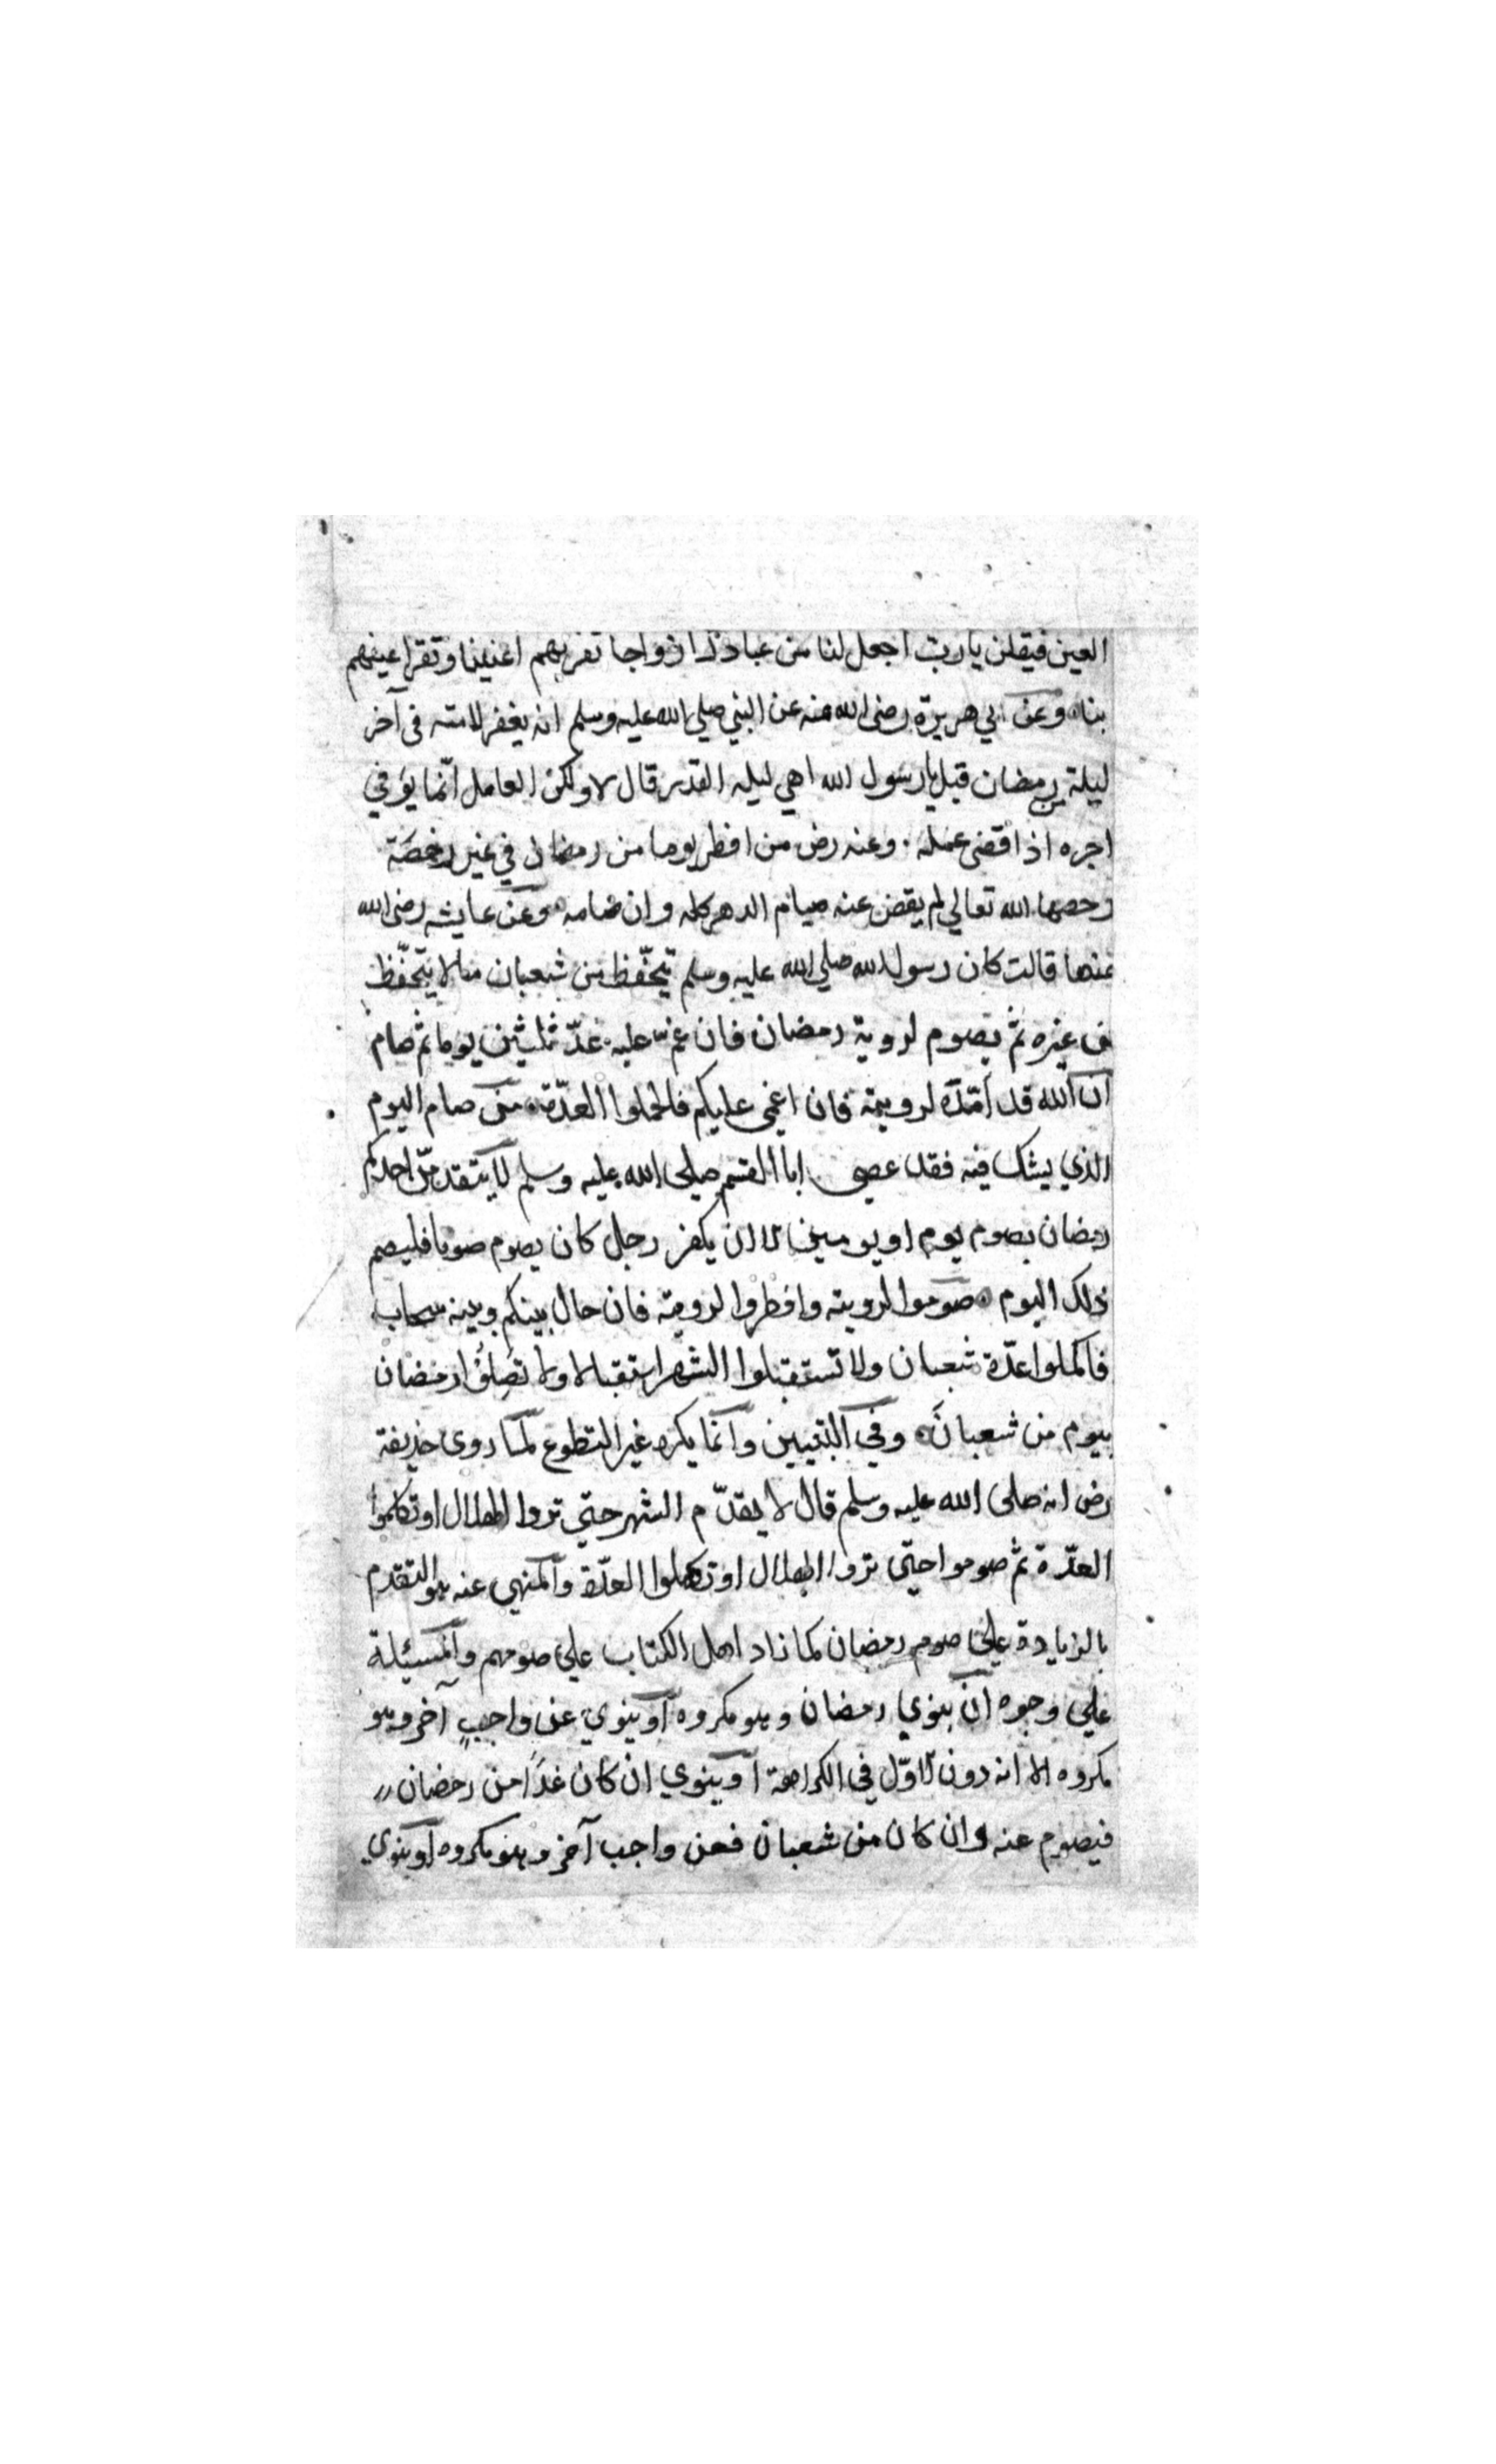 العين فيقلن يارب اجعل لنا من عبادك ازواجا تقر بهم اعيننا وتقر اعينهم
بنا وعن ابي هريرة رضى الله عنه عن النبي صلى الله عليه وسلم انه يغفر لامته فى آخر
ليلة من رمضان قيل يا رسول الله اهي ليله القدر قال لا ولكن العامل انّما يوفي
اجره اذا قضى عمله وعنه رض من افطر يوما من رمضان في غير رخصة
رخصها الله تعالي لم يقض عنه صيام الدهر كله وان صامه وعن عايشه رضى الله
عنها قالت كان رسول الله صلي الله عليه وسلم يتحفّظ من شعبان مالا يتحفّظ
من غيره ثم يصوم لروية رمضان فان غمّ عليه عدّ ثلثين يوما ثم صام
ان الله قد امدّه لرويته فان اغمي عليكم فاكملوا العدّة من صام اليوم
الذي يشك فيه فقد عصى ابا القسم صلى الله عليه وسلم لا يتقدمنّ احدكم
رمضان بصوم يوم او يومين الا ان يكون رجل كان يصوم صوما فليصم
ذلك اليوم صوموا لرويته وافطروا لرويته فان حال بينكم وبينه سحاب
فاكملوا عدّة شعبان ولا تستقبلوا الشهر استقبالا ولا تصلوا رمضان
بيوم من شعبان وفي التبيين وانما يكره غير التطوع لما روى حذيفة
رض انه صلى الله عليه وسلم قال لا يقدّم الشهر حتي تروا الهلال او تكملوا
العدّة ثم صوموا حتّى تروا الهلال او تكملوا العدّة والمنهى عنه هو التقدم
بالزيادة علي صوم رمضان كما زاد اهل الكتاب علي صومهم والمسئلة
علي وجوه ان ينوي رمضان وهو مكروه او ينوي عن واجب آخر وهو
مكروه الا انه دون الاوّل في الكراهة او ينوي ان كان غدًا من رمضان
فيصوم عنه وان كان من شعبان فعن واجب آخر وهو مكروه او ينوي